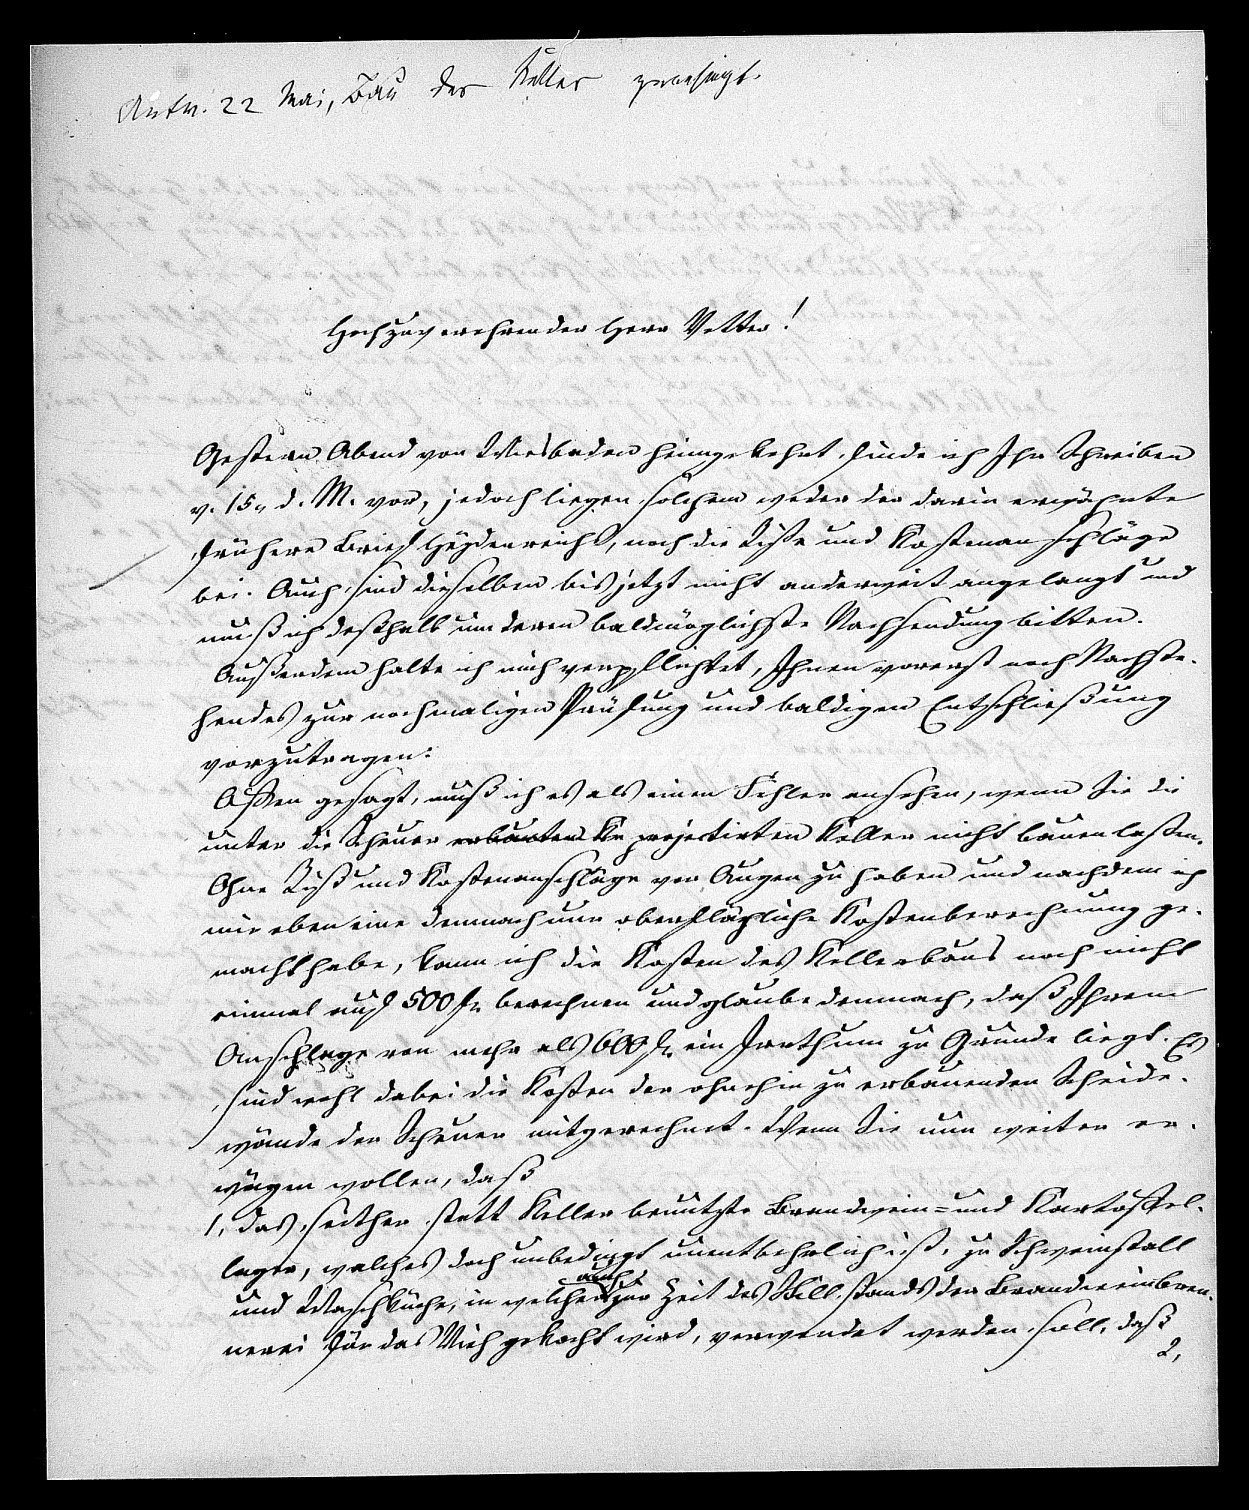 Antw. 22 Mai, Bau des Kellers genehmigt.
Hochzuverehrender Herr Vetter!
Gestern Abend von Wiesbaden heimgekehrt, finde ich Ihr Schreiben
v. 15. d. M. vor, jedoch liegen solchem weder der darin erwähnte
frühere Brief Heydenreichs, noch die Riße und Kostenanschläge
bei. Auch sind dieselben bis jetzt nicht anderweit angelangt und
muß ich deßhalb um deren baldmöglichste Nachsendung bitten.
Außerdem halte ich mich verpflichtet, Ihnen vorerst noch Nachste-
hendes zur nochmaligen Prüfung und baldigen Entschließung
vorzutragen:
Offen gesagt, muß ich es als einen Fehler ansehen, wenn Sie die
unter die Scheuer erbauten projectirten Keller nicht bauen laßen.
Ohne Riß und Kostenanschläge vor Augen zu haben und nachdem ich
mir eben eine demnach nur oberflächliche Kostenberechnung ge-
macht habe, kann ich die Kosten des Kellerbaus noch nicht
einmal auf 500 fr berechnen und glaube demnach, daß Ihrem
Anschlage von mehr als 600 fr ein Irrthum zu Grunde liegt. Es
sind wohl dabei die Kosten der ohnehin zu erbauenden Scheide-
wände der Scheuer mitgerechnet. Wenn Sie nun weiter er-
wägen wollen, daß
1, das seither statt Keller benutzte Brandwein- und Kartoffel-
lager, welches doch unbedingt unentbehrlich ist, zu Schweinstall
und Waschküche, in welcher auch zur Zeit des Stillstands der Brandweinbren-
nerei für das Vieh gekocht wird, verwendet werden soll, daß
2,